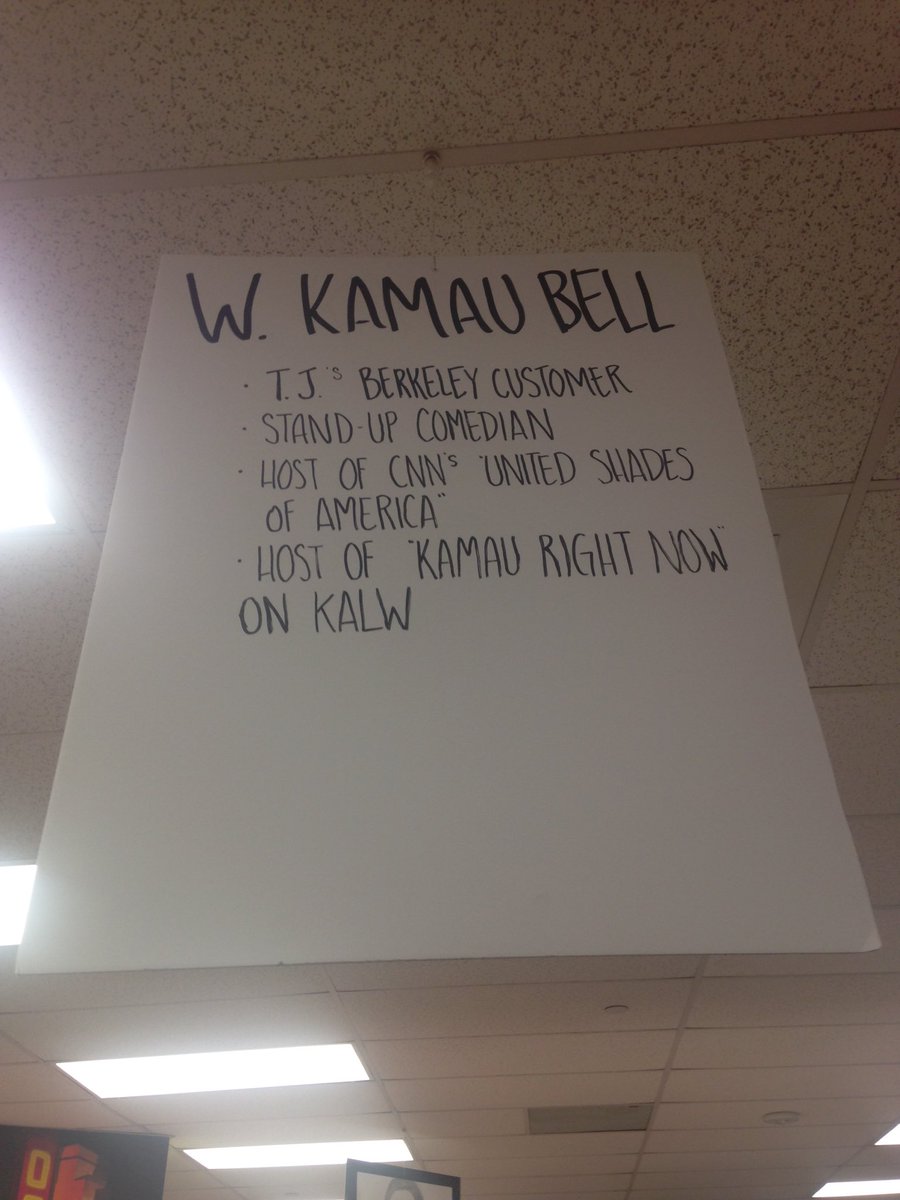 W. KAMAU BELL
· T.J.'s BERKELEY CUSTOMER
· STAND-UP COMEDIAN
· HOST OF CNN's "UNITED SHADES
OF AMERICA"
· HOST OF "KAMAU RIGHT NOW"
ON KALW